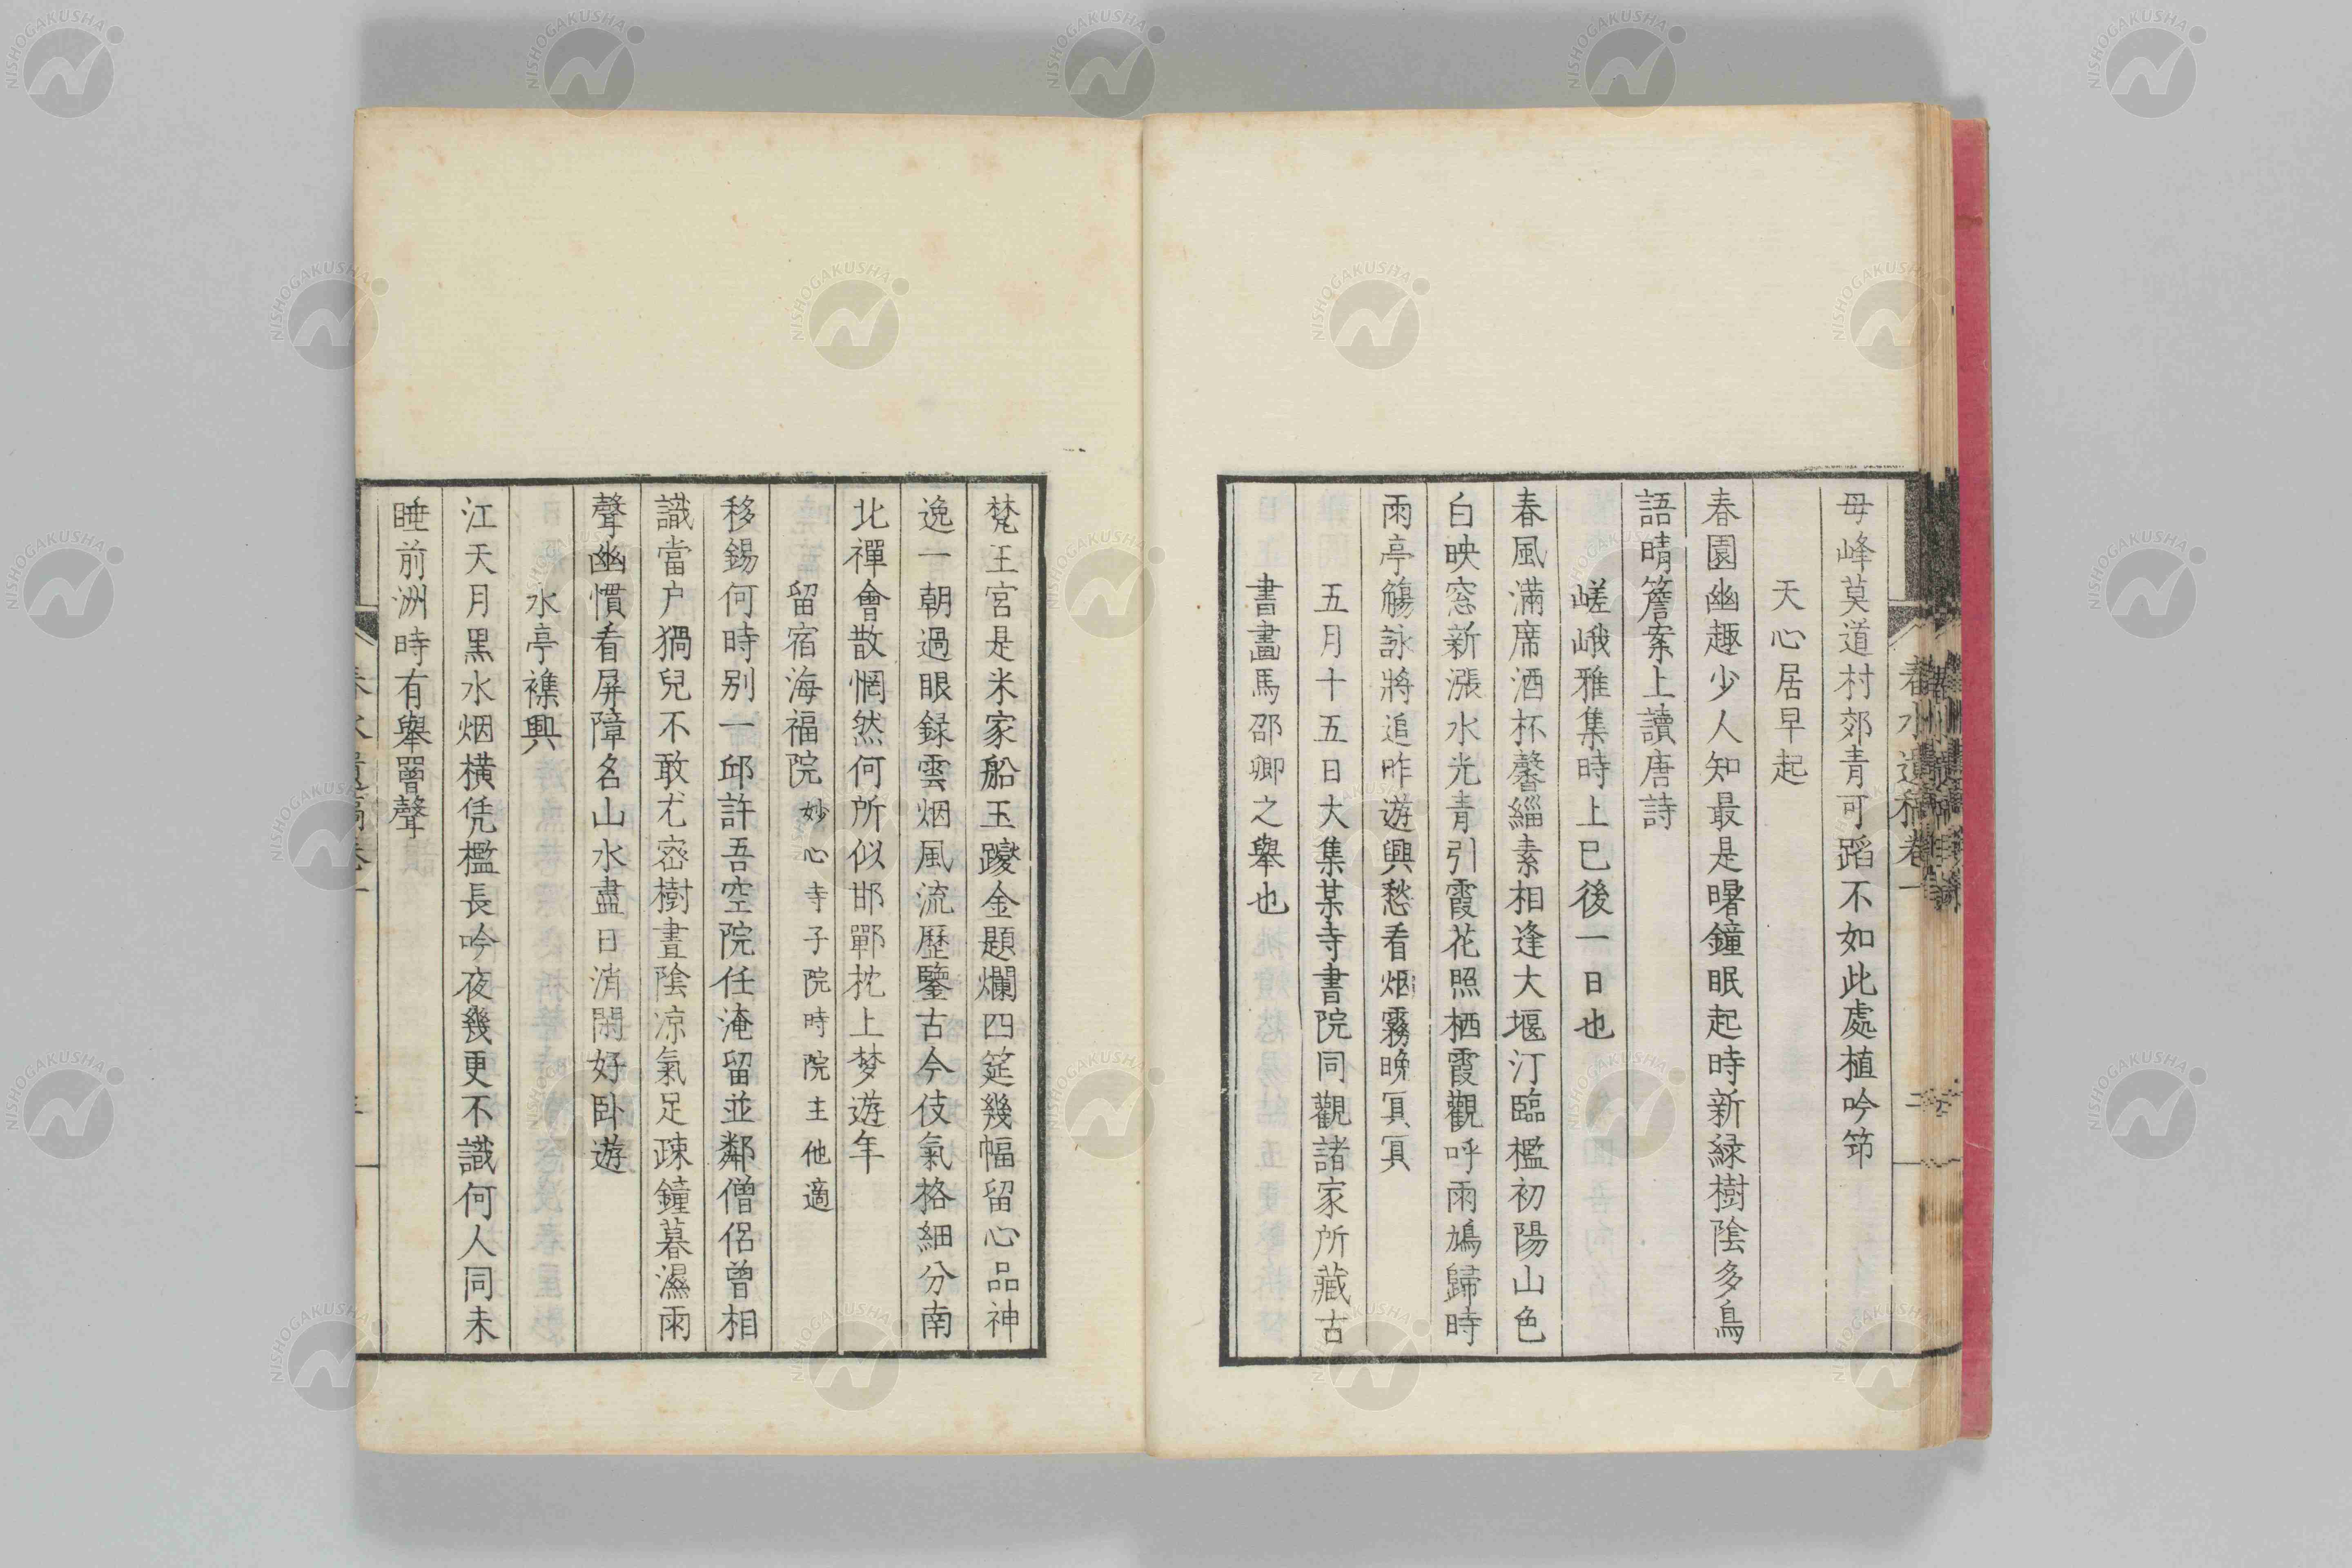 母峰莫道村郊青可蹈不如此處植吟筇
天心居早起
春園幽趣少人知最是曙鐘眠起時新緑樹陰多鳥
語晴簷案上讀唐詩
嵯峨雅集時上巳後一日也
春風滿席酒杯馨緇素相逢大堰汀臨檻初陽山色
白映窓新漲水光青引霞花照栖霞觀呼雨鳩歸時
雨亭觴詠將追昨遊興愁看烟霧晩冥冥
五月十五日大集某寺書院同觀諸家所藏古
書畫馬邵卿之舉也
春水遺稿卷一
二
梵王宮是米家船玉躞金題爛四筵幾幅留心品神
逸一朝過眼録雲烟風流歷鑒古今伎氣格細分南
北禪會散惘然何所似邯鄲枕上梦遊年
留宿海福院妙心寺子院時院主他適
移錫何時别一邱許吾空院任淹留並鄰僧侶曾相
識當户猧兒不敢尤宻樹晝陰凉氣足疎鐘暮濕雨
聲幽慣看屏障名山水盡日消閑好卧遊
水亭襍興
江天月黒水烟橫凭檻長吟夜幾更不識何人同未
睡前洲時有舉罾聲
NISHOGAKUSHA